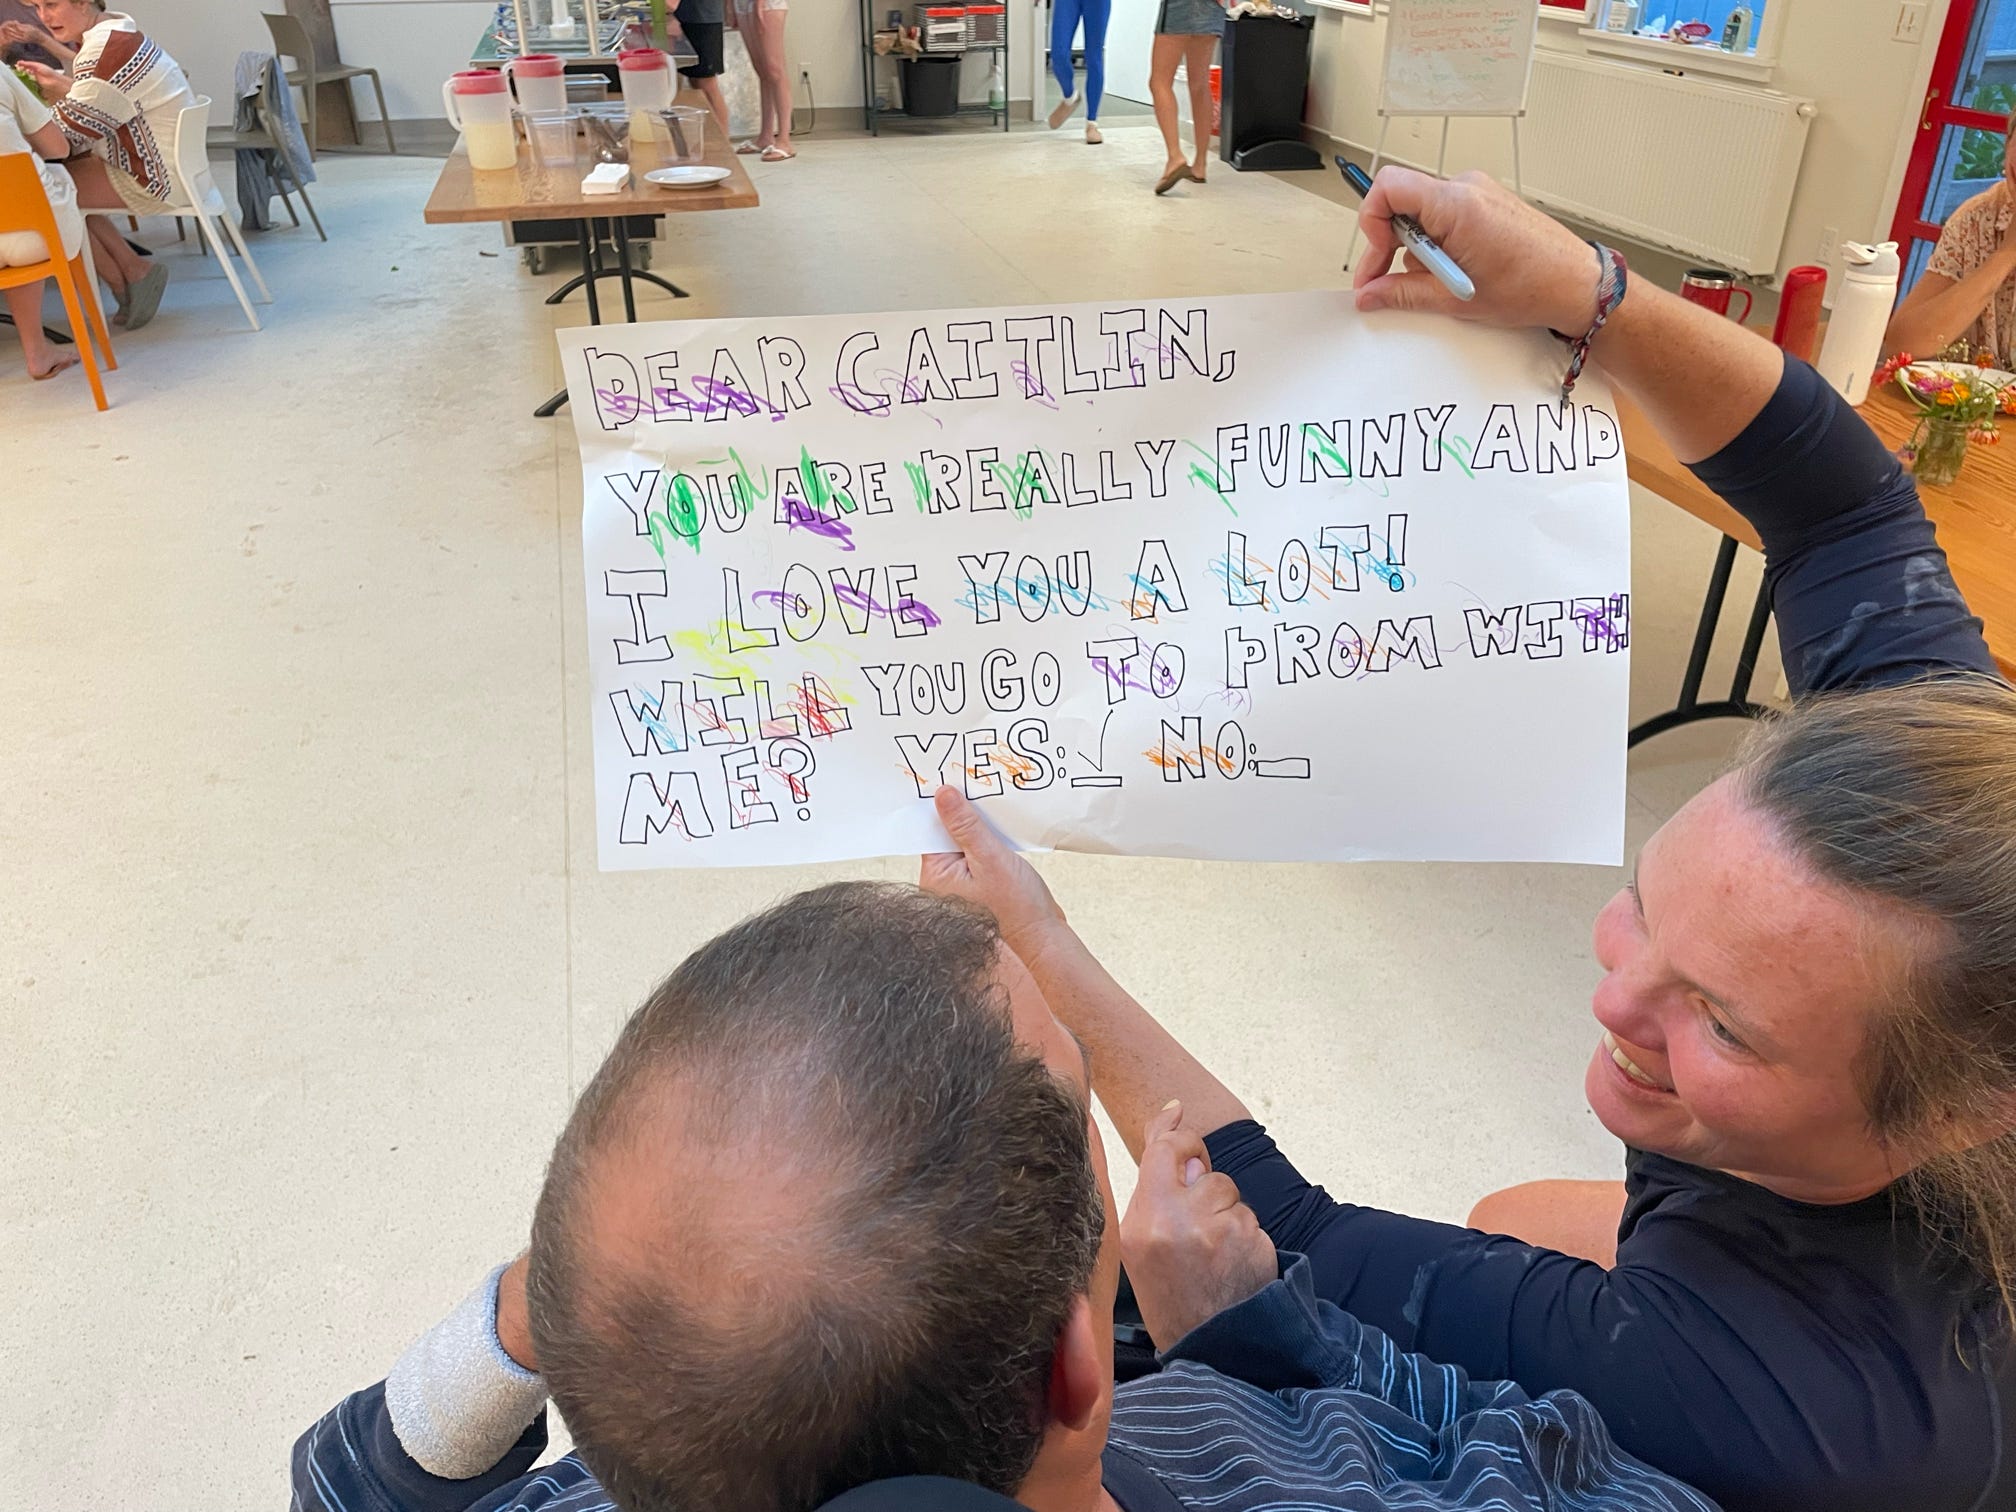 DEAR CAITLIN,
YOU ARE REALLY FUNNY AND
I LOVE YOU A LOT!
WILL YOU GO TO PROM WITH
ME? YES: ✓ NO: _